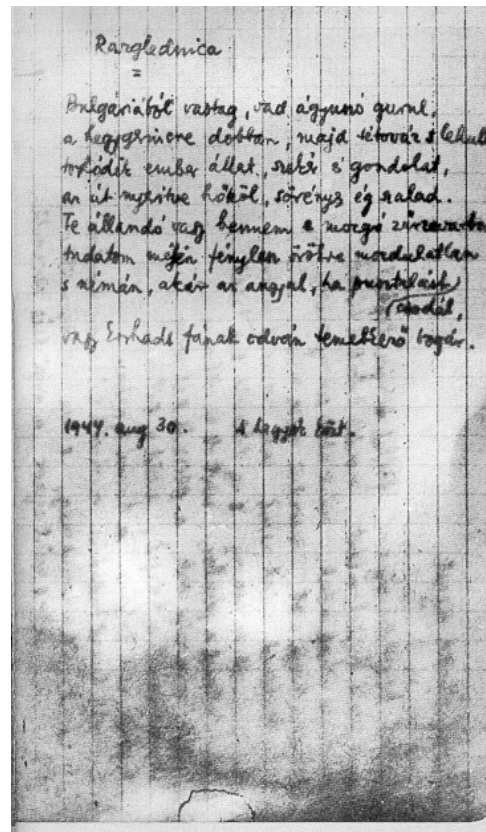 Razglednica
Bulgáriából vastag, vad ágyuszó gurul,
a hegygerincre dobban, majd tétováz s lehull
torlódik ember állat, szekér és gondolat,
az út nyerítve hőköl, sörényes ég szalad.
Te állandó vagy bennem e mozgó zűrzavarban
tudatom mélyén fénylesz örökre mozdulatlan
s némán, akár az angyal, ha pusztulást
csodál,
vagy korhadt fának odván temetkező bogár.
1944. aug 30. A hegyek közt.